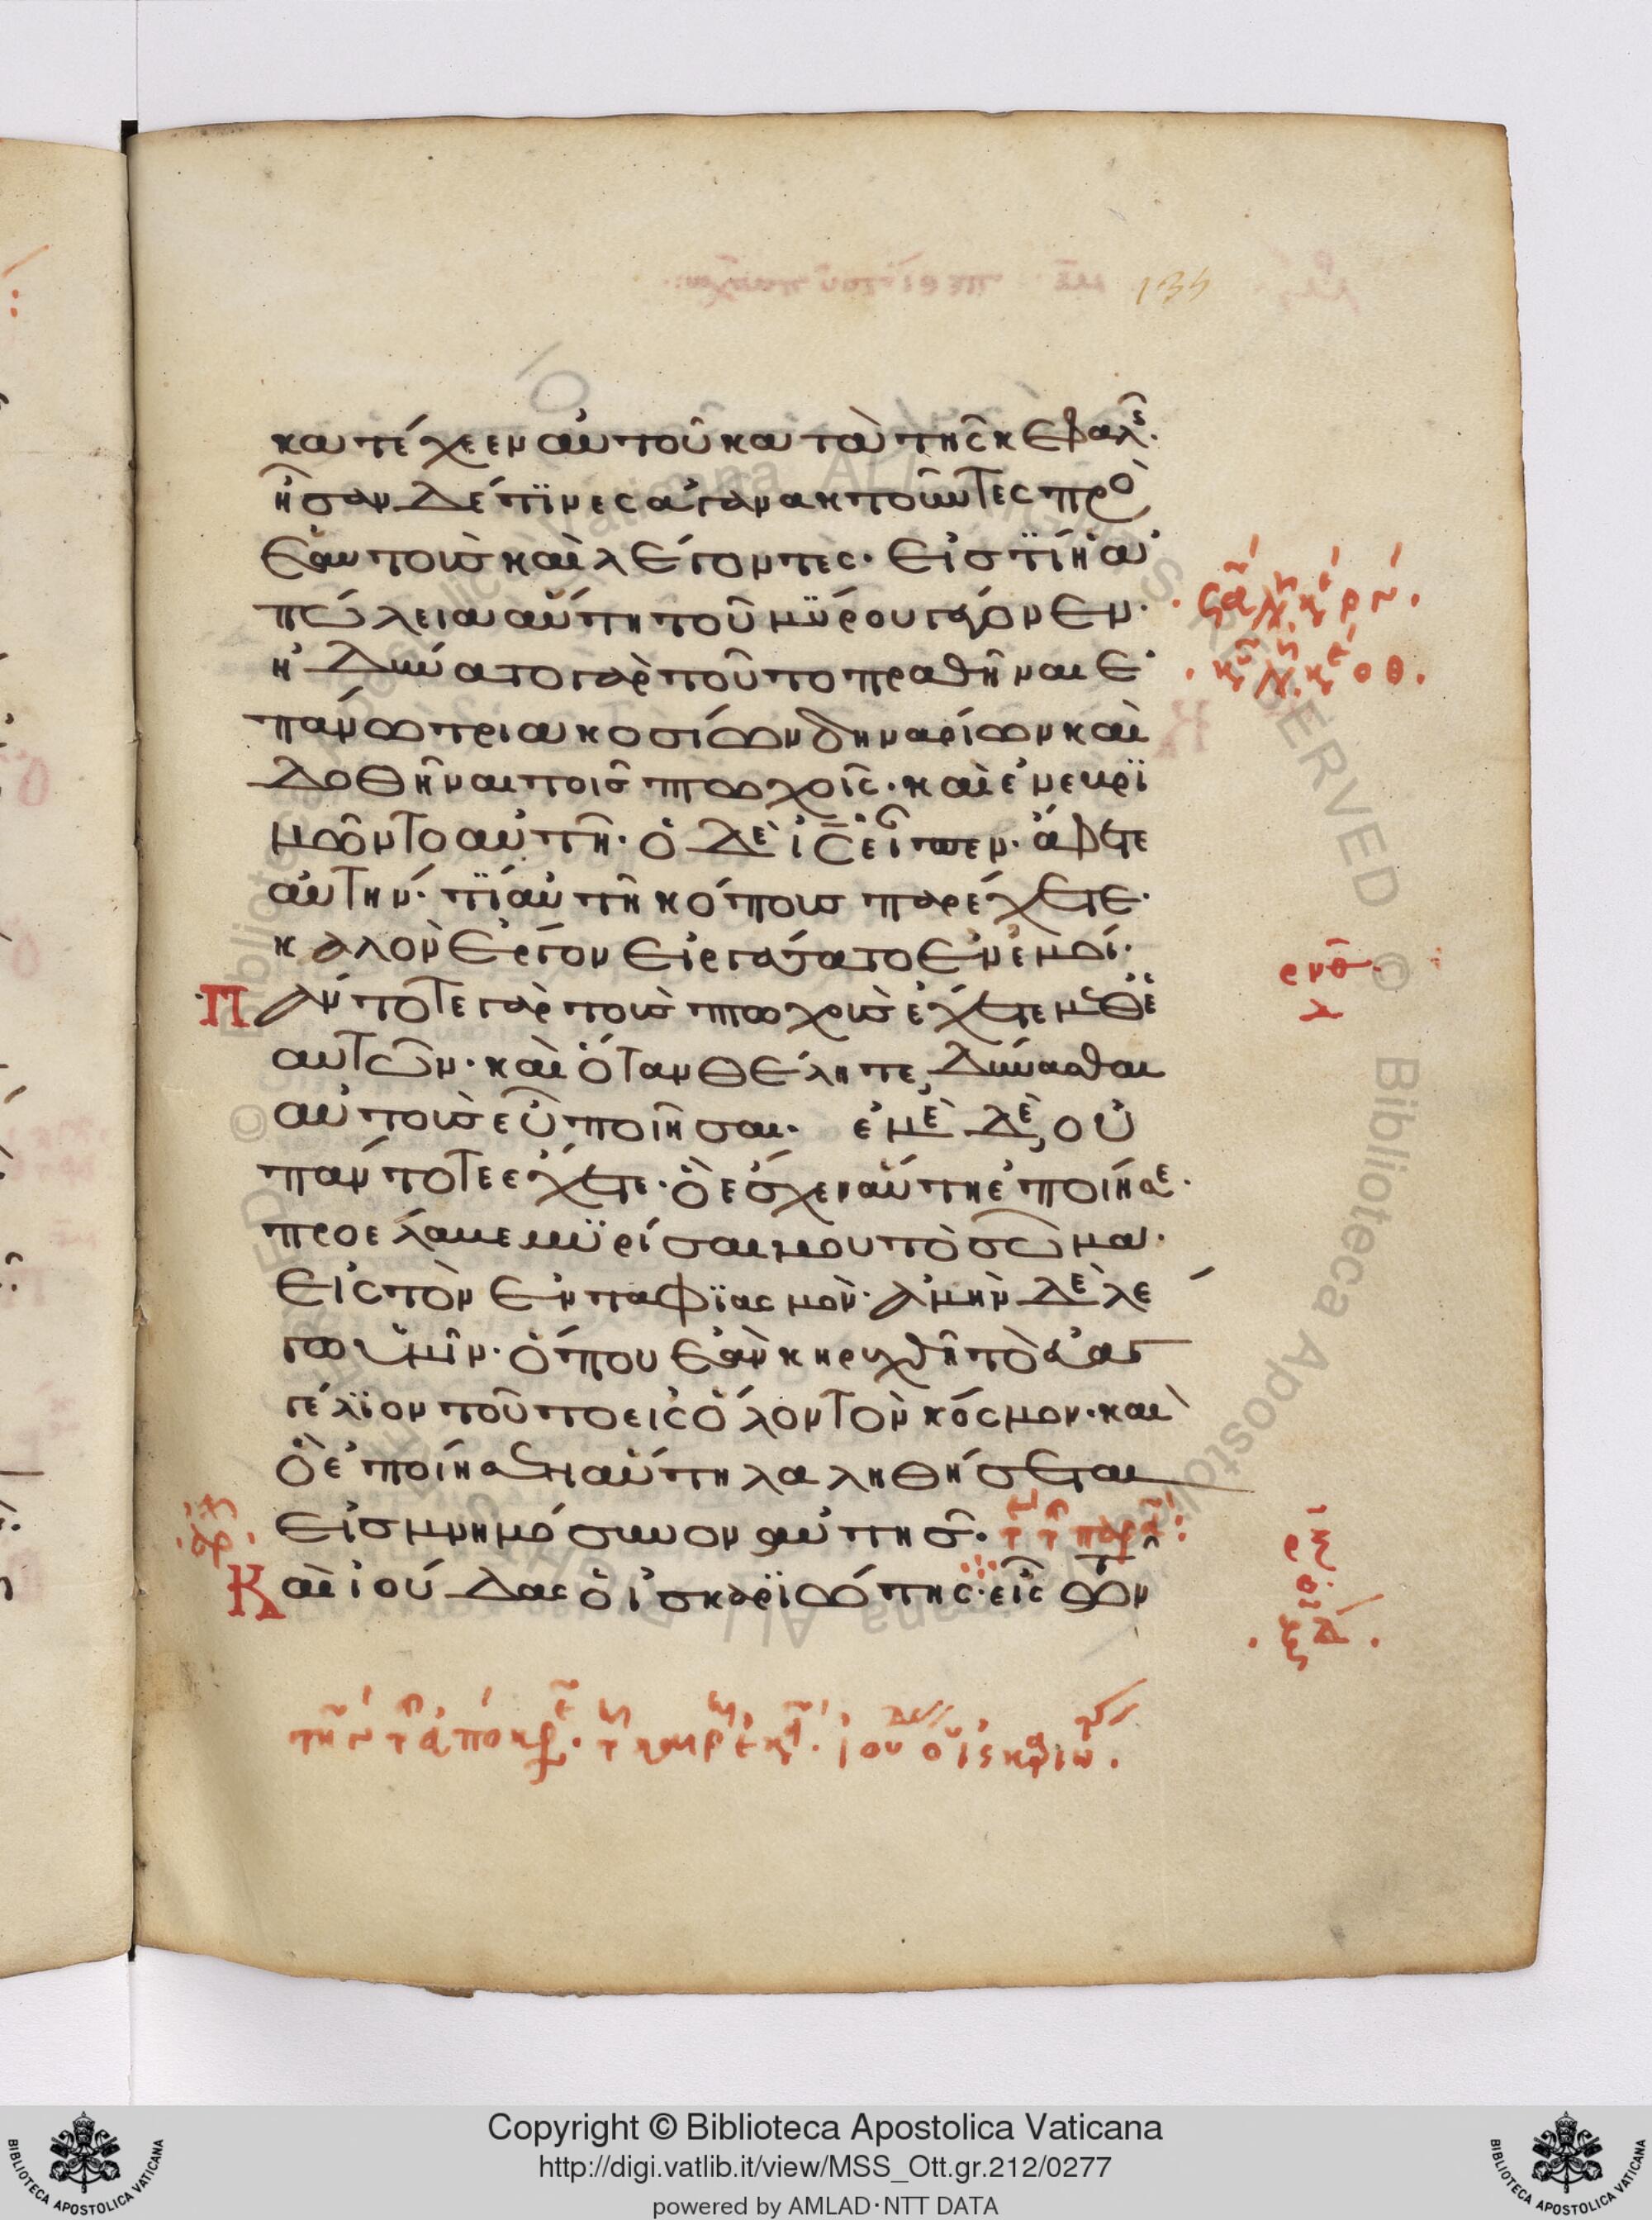 134
κατέχεεν αὐτοῦ κατὰ τῆς κεφαλῆς.
ἦσαν δέ τϊνες ἀγανακτοῦντες πρὸ
ἑαυτοὺς καὶ λέγοντες. εἰς τΐ ἡ ἀ
πώλεια αὕτη τοῦ μΰρου γέγονεν.
ἠδύνατο γὰρ τοῦτο πραθῆναι ἐ
πάνω τριακοσίων δηναρίων καὶ
δοθῆναι τοῖς πτωχοῖς. καὶ ἐνευρϊ
μῶντο αὐτῆ. ὁ δὲ ις εἶπεν. ἄφετε
αὐτήν. τΐ αὐτῆ κόπους παρέχετε.
καλὸν ἔργον εἰργάσατο ἐν ἐμοί.
Πάντοτε γὰρ τοὺς πτωχοὺς ἔχετε μεθ ἑ
αυτῶν. καὶ ὅταν θέλητε, δύνασθαι
αὐτοὺς εὖ ποιῆσαι. ἐμὲ δὲ, οὐ
πάντοτε ἔχετε. ὃ ἔσχεν αὕτη ἐποίησε.
προέλαβε μυρίσαι μου τὸ σῶμα.
εἰς τὸν ἐνταφϊασμόν. ἀμὴν δὲ λέ
γω ὑμῖν. ὅπου ἐὰν κηρυχθῆ τὸ εὐαγ
γέλϊον τοῦτο εἰς ὅλον τὸν κόσμον. καὶ
ὃ ἐποίησεν αὕτη λαληθήσεται
εἰς μνημόσυνον αὐτῆς.
Καὶ ἰούδας ὁ ἰσκαρϊώτης. εἷς τῶν
Copyright © Biblioteca Apostolica Vaticana
http://digi.vatlib.it/view/MSS_Ott.gr.212/0277
powered by AMLAD·NTT DATA
BIBLIOTECA APOSTOLICA VATICANA
BIBLIOTECA APOSTOLICA VATICANA